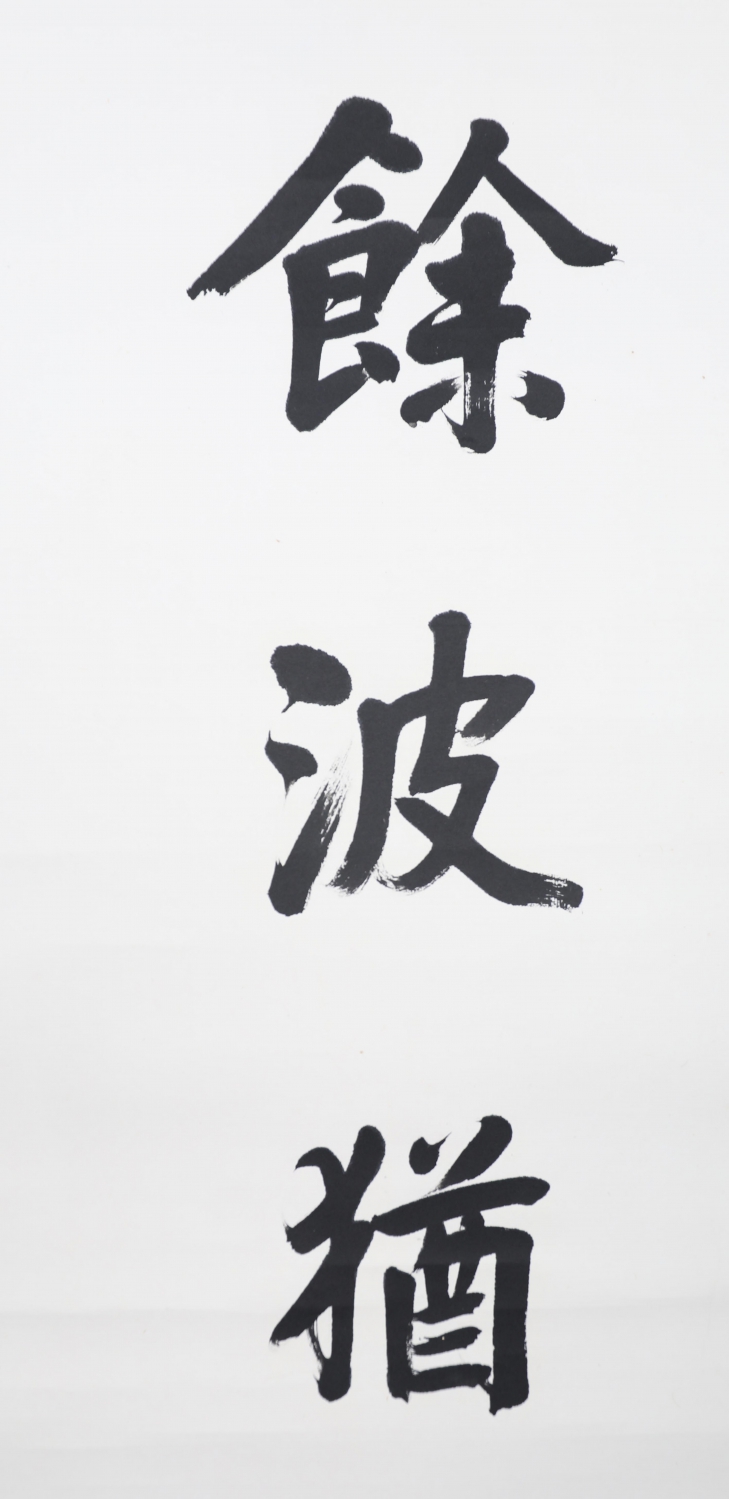 餘波猶